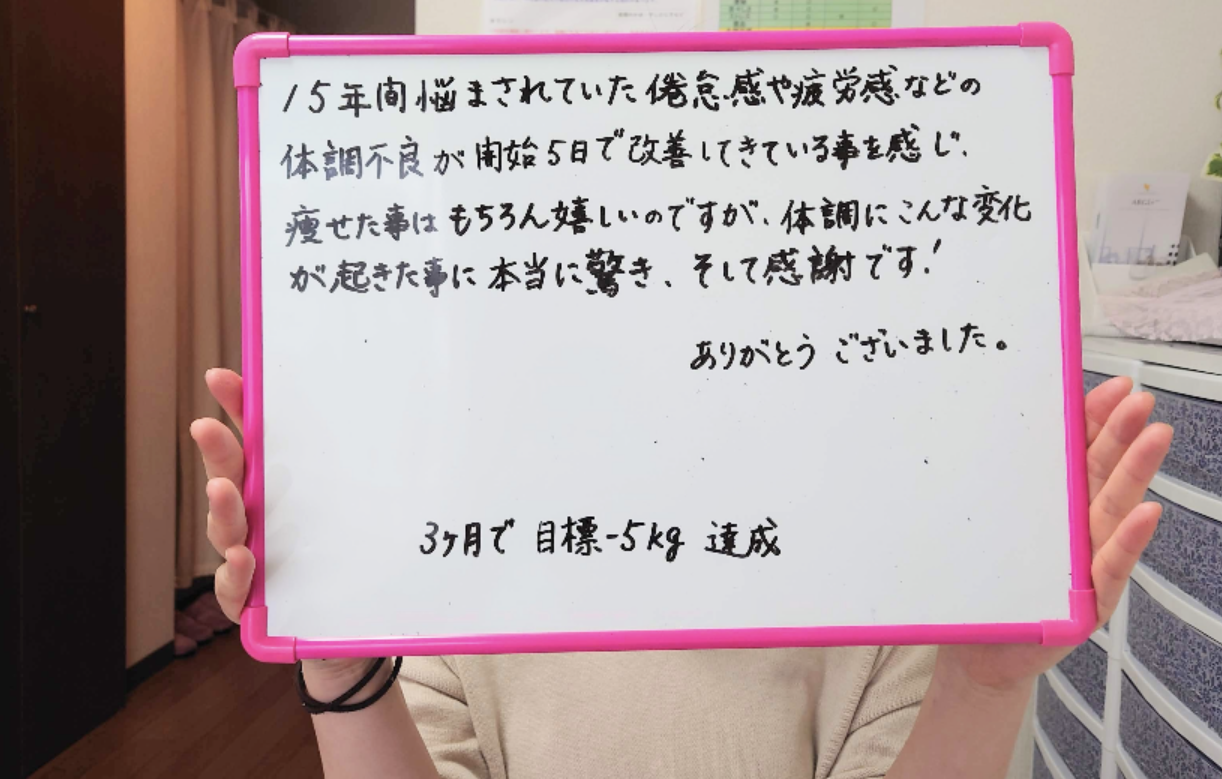 15年間悩まされていた倦怠感や疲労感などの
体調不良が開始5日で改善してきている事を感じ、
痩せた事はもちろん嬉しいのですが、体調にこんな変化
が起きた事に本当に驚き、そして感謝です!
ありがとうございました。
3ヶ月で 目標-5kg 達成